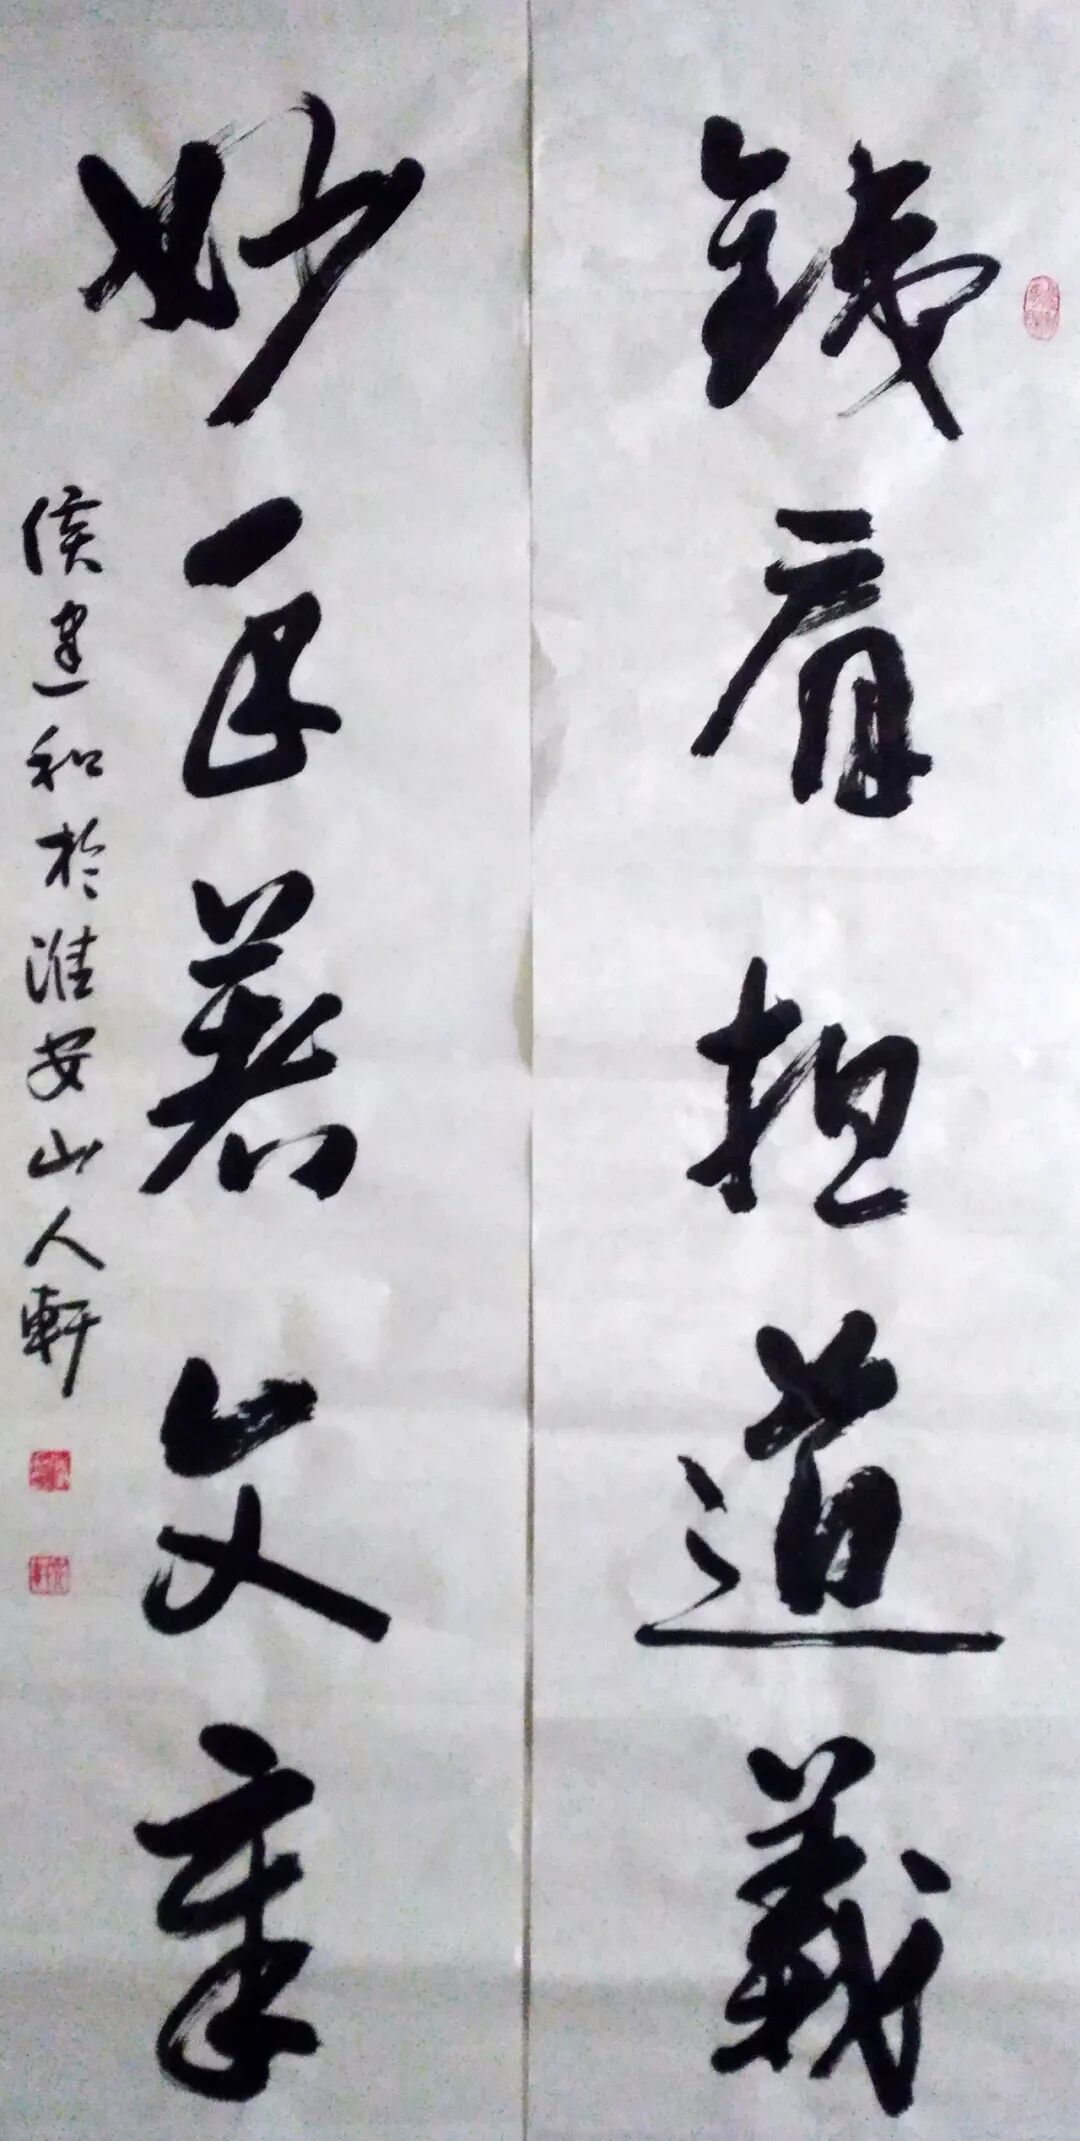 鐵肩担道義
妙手著文章
侯建和於淮安山人軒